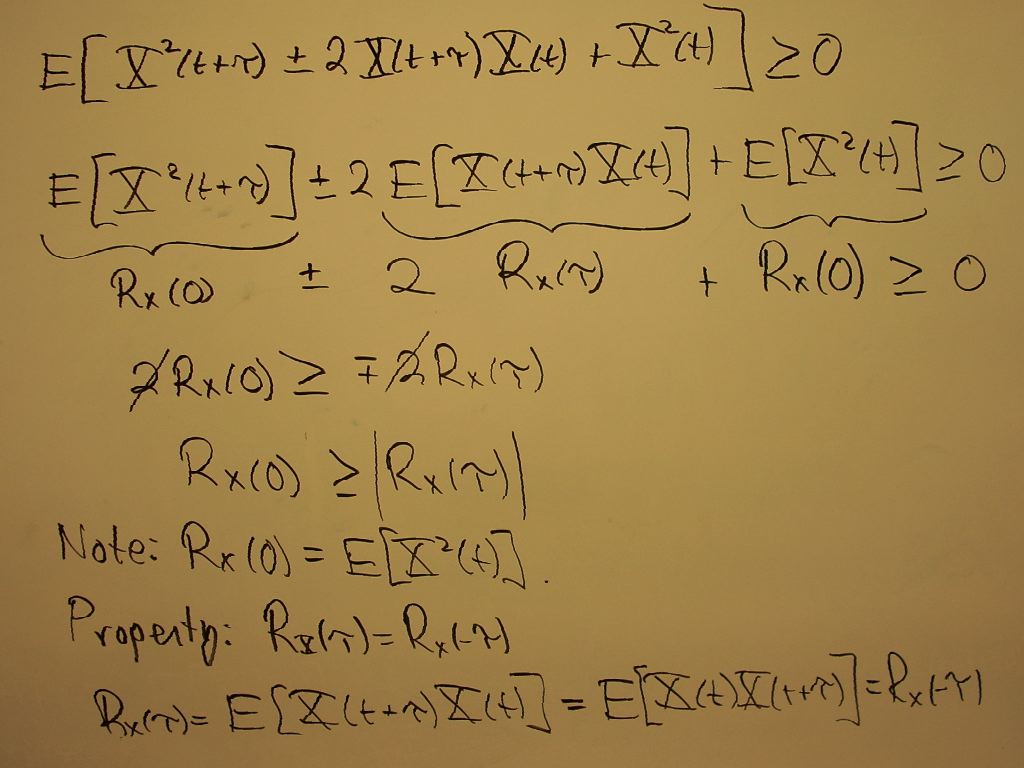 E[X²(t+τ) ± 2X(t+τ)X(t) + X²(t)] ≥ 0
E[X²(t+τ)] ± 2 E[X(t+τ)X(t)] + E[X²(t)] ≥ 0
Rx(0) ± 2 Rx(τ) + Rx(0) ≥ 0
2Rx(0) ≥ ∓2Rx(τ)
Rx(0) ≥ |Rx(τ)|
Note: Rx(0) = E[X²(t)].
Property: Rx(τ) = Rx(-τ)
Rx(τ) = E[X(t+τ)X(t)] = E[X(t)X(t+τ)] = Rx(-τ)